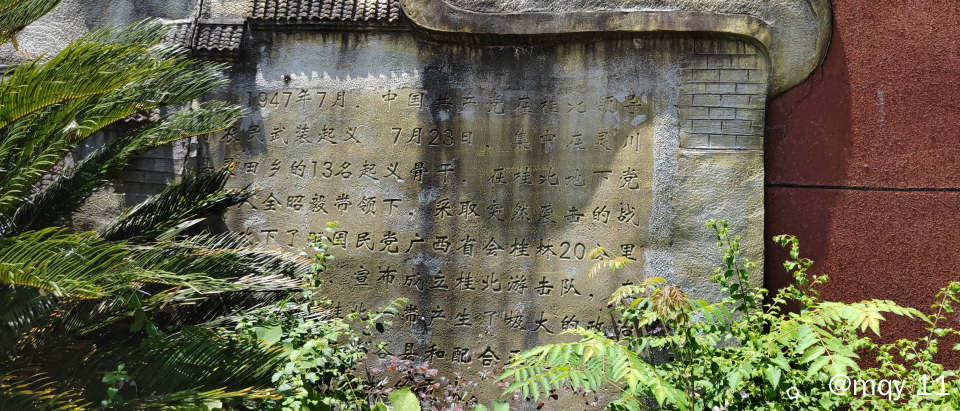 1947年7月,中国共产党在桂北领导
武装起义 7月23日,集中在灵川
田乡的13名起义骨干,在桂北地下党
全昭毅带领下,采取突然袭击的战
下了 国民党广西省会桂林20公里
宣布成立桂北游击队,
带产生了极大的政治
谷县和配合
@mqy_11